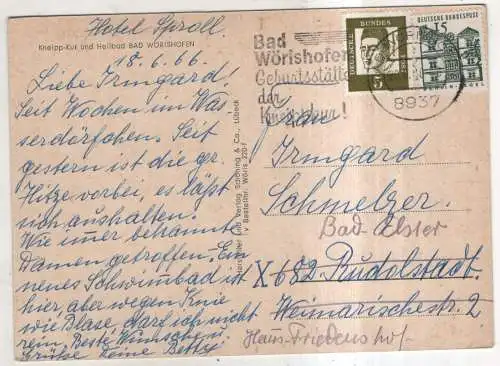 Hotel Sproll.
Kneipp-Kur und Heilbad BAD WÖRISHOFEN
18.6.66.
Liebe Irmgard!
Seit Wochen im Was
serdörfchen. Seit
gestern ist die gr.
Hitze vorbei, es läßt
sich aushalten.
Wie immer bekannte
Damen getroffen. Ein
neues Schwimmbad ist
hier aber wegen Knie
wie Blase, darf ich nicht
rein. Beste Wünsche u.
Grüße Deine Betty
Verlag Schöning & Co., Lübeck
Bestellnr. Wöris 220
Bad
Wörishofen
Geburtsstätte
der
Kneippkur!
DEUTSCHE BUNDESPOST
15
5
8937
Frau
Irmgard
Schmelzer
Bad Elster
X 682 Rudolstadt
Weimarischestr. 2
Haus Friedenshof